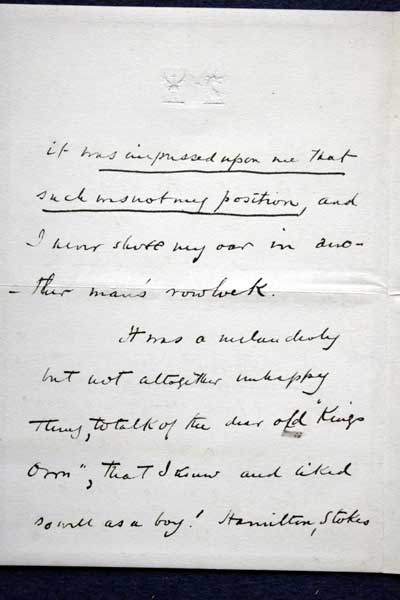 it was impressed upon me that
such was not my position, and
I never shove my oar in ano-
-ther man's rowlock.
It was a melancholy
but not altogether unhappy
thing, to talk of the dear old "Kings
Own", that I knew and liked
so well as a boy! Hamilton, Stokes